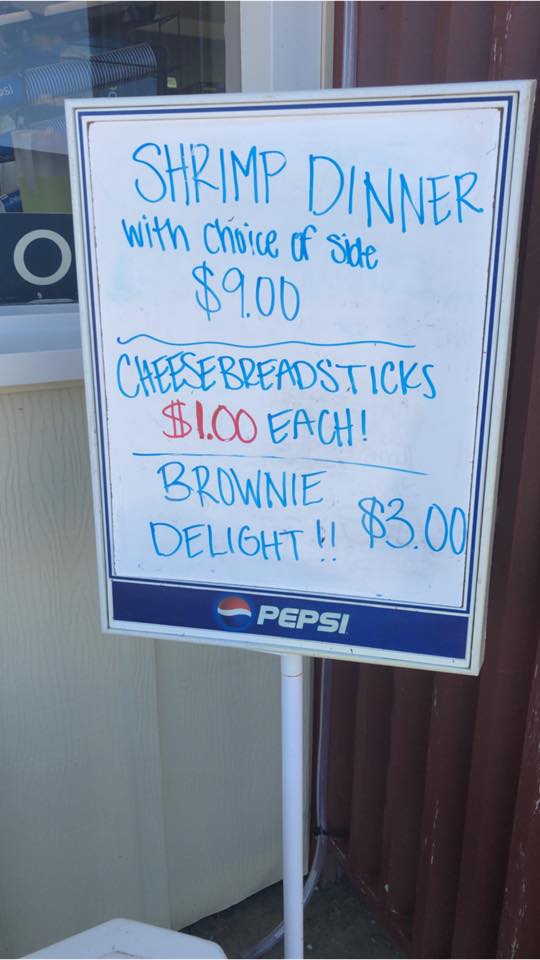 SHRIMP DINNER
with choice of side
$9.00
CHEESEBREADSTICKS
$1.00 EACH!
BROWNIE
DELIGHT!! $3.00
PEPSI